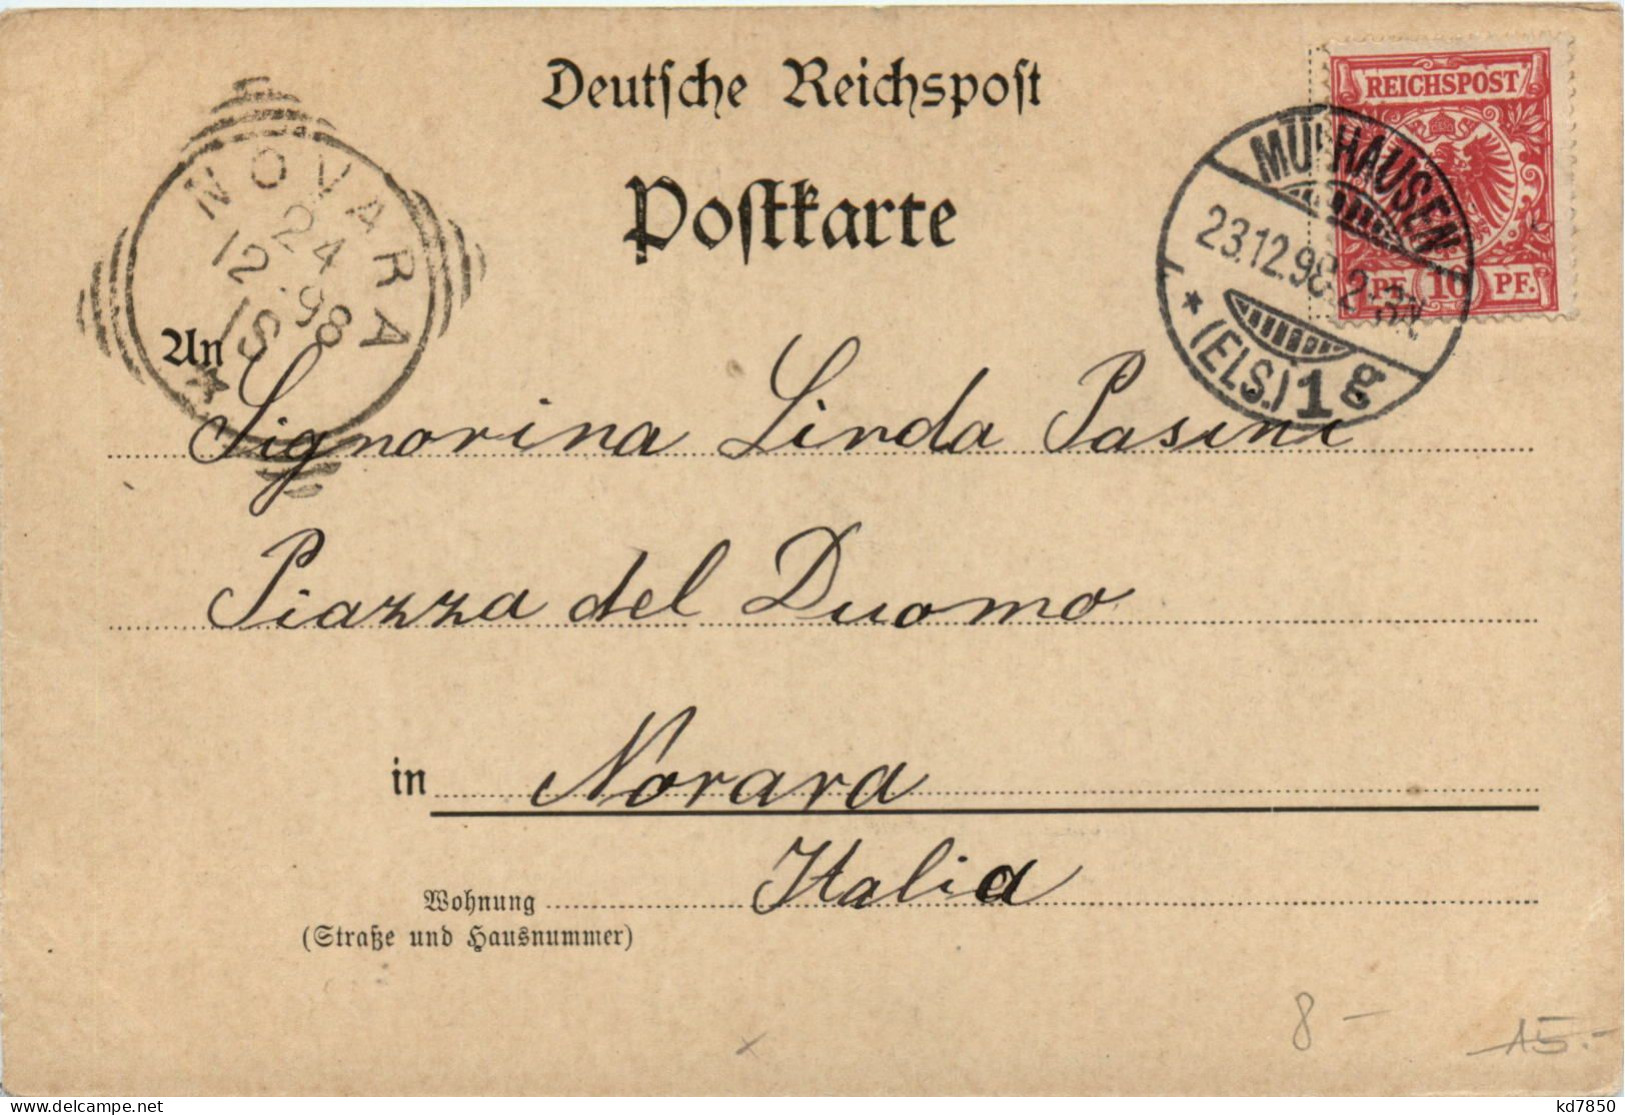 Deutsche Reichspost
Postkarte
REICHSPOST
PF. 10 PF.
MÜLHAUSEN
23.12.98. 2-3N.
* (ELS.) 1g
NOVARA
24
12.98
An
Signorina Linda Pasini
Piazza del Duomo
in Novara
Italia
Wohnung
(Straße und Hausnummer)
8 -
15.-
kd7850